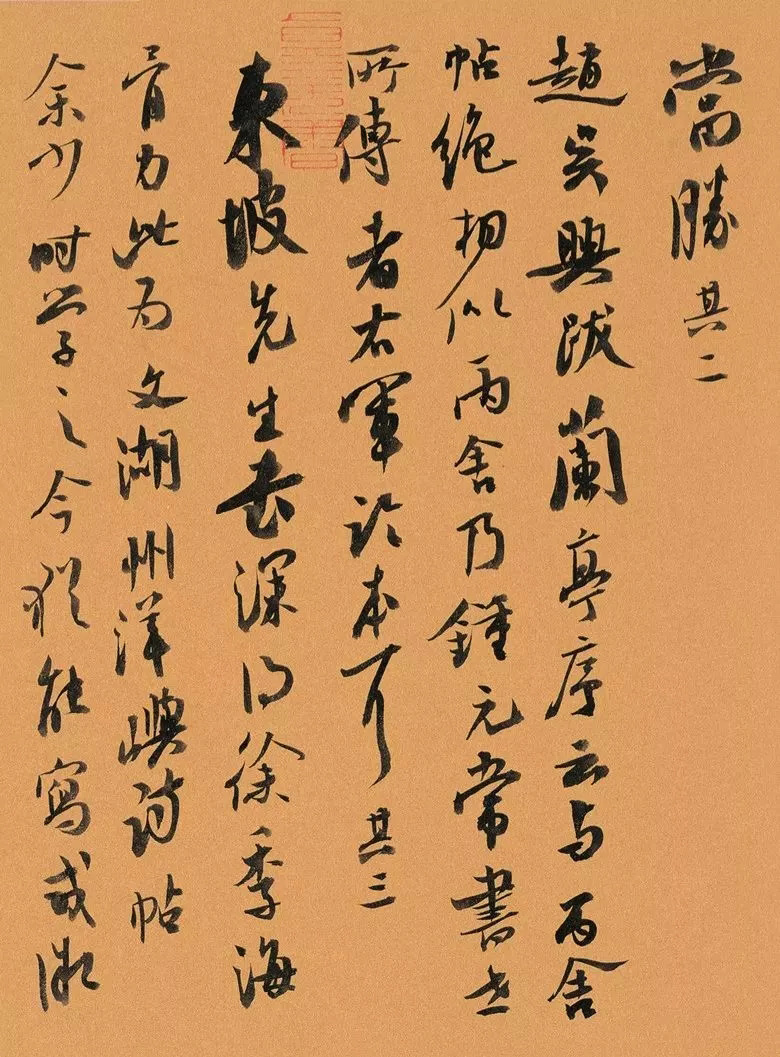 當勝 其二
趙吳興跋蘭亭序云与丙舍
帖絶相似丙舍乃鍾元常書世
所傳者右軍臨本耳 其三
東坡先生書深得徐季海
骨力此为文湖州洋嶼詩帖
余少時學之今猶能寫或微